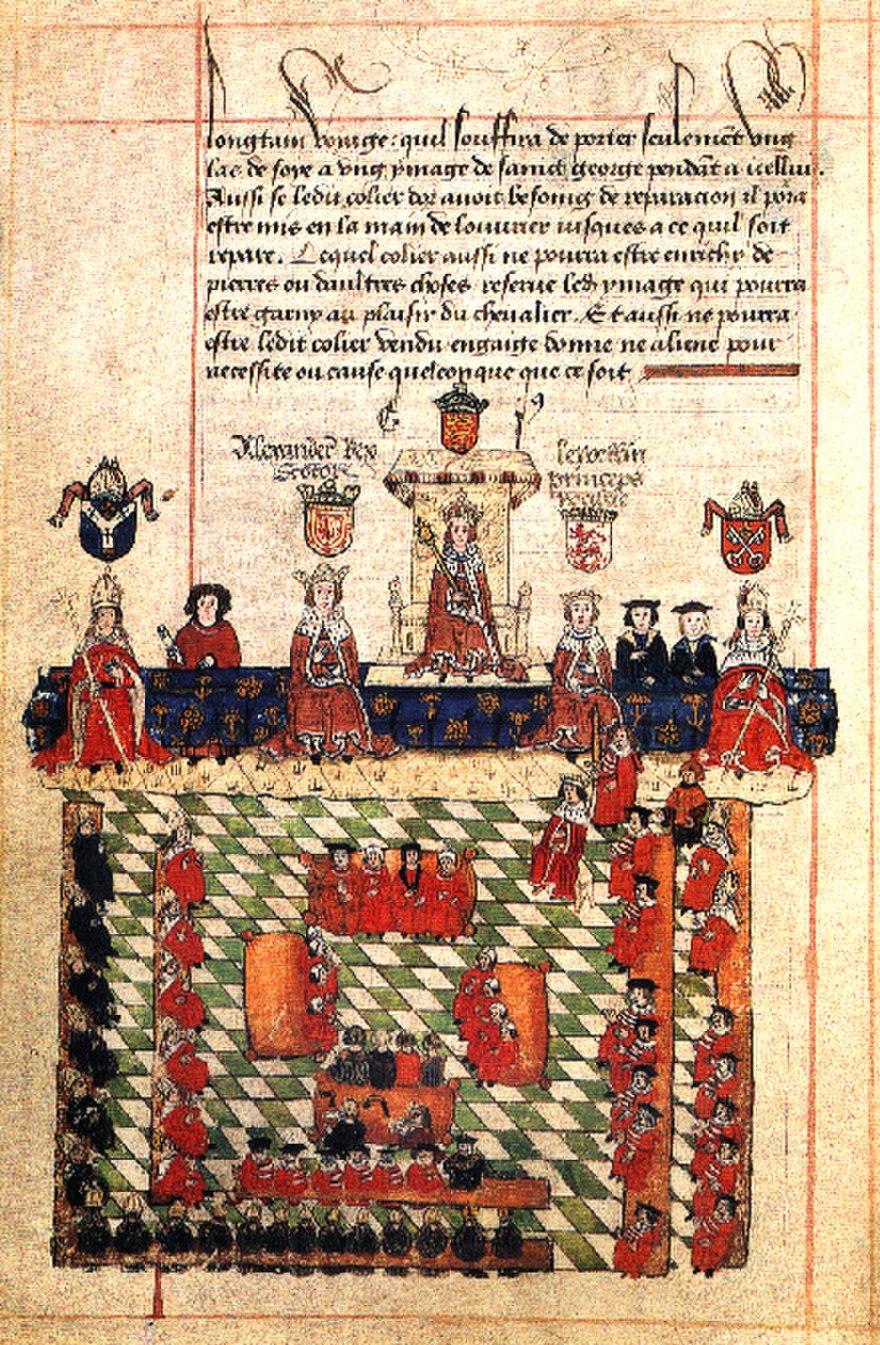 longtain voiaige: quil souffira de porter seulemēt ung
las de soye a ung ymage de sainct george pendāt a icelluy.
Aussi se ledit colier dor avoit besoing de reparacion il pora
estre mis en la main de louvrier iusques a ce quil soit
repare. Lequel colier aussi ne pourra estre enrichy de
pierres ou daultres choses reserve led ymage qui pourra
estre garny au plaisir du chevalier. Et aussi ne pourra
estre ledit colier vendu engaige donne ne aliene pour
necessite ou cause quelconque que ce soit
E
Alexander Rex
Scotor
princeps